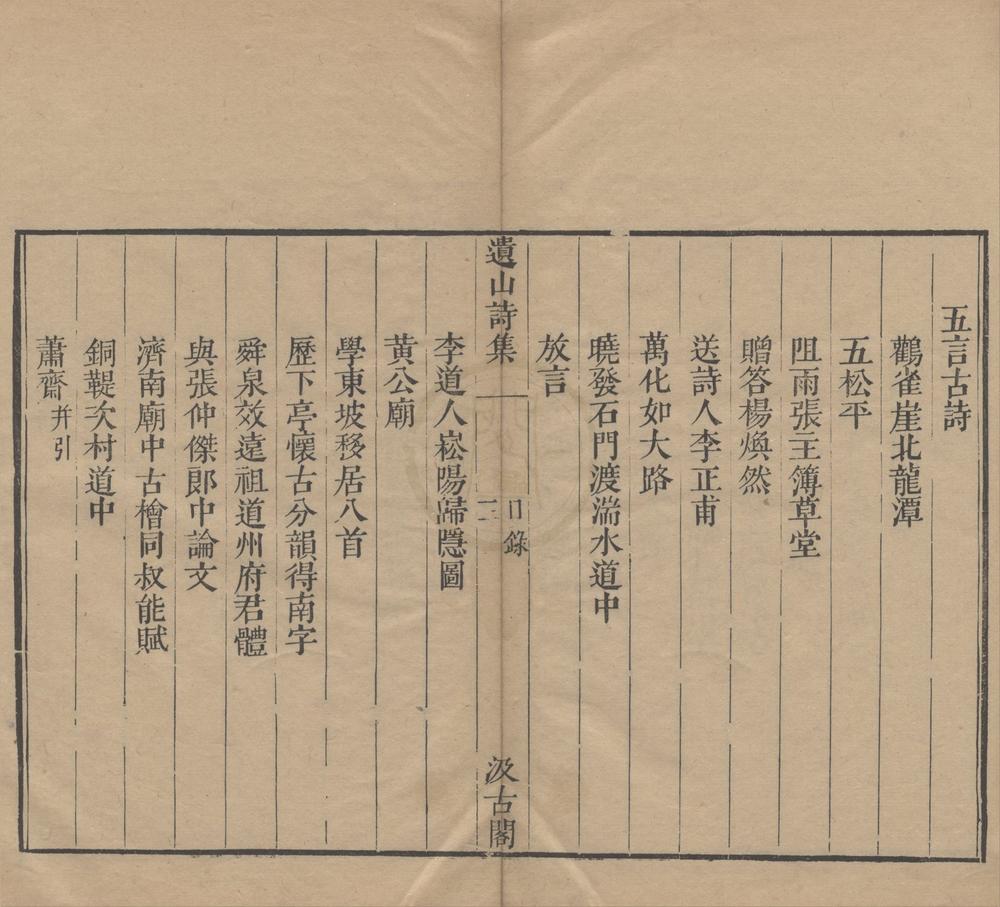 五言古詩
鸛雀崖北龍潭
五松平
阻雨張主簿草堂
贈答楊煥然
送詩人李正甫
萬化如大路
曉發石門渡湍水道中
放言
遺山詩集
目錄
二
汲古閣
李道人崧陽歸隱圖
黃公廟
學東坡移居八首
歷下亭懷古分韻得南字
舜泉效遠祖道州府君體
與張仲傑郎中論文
濟南廟中古檜同叔能賦
銅鞮次村道中
蕭齋并引